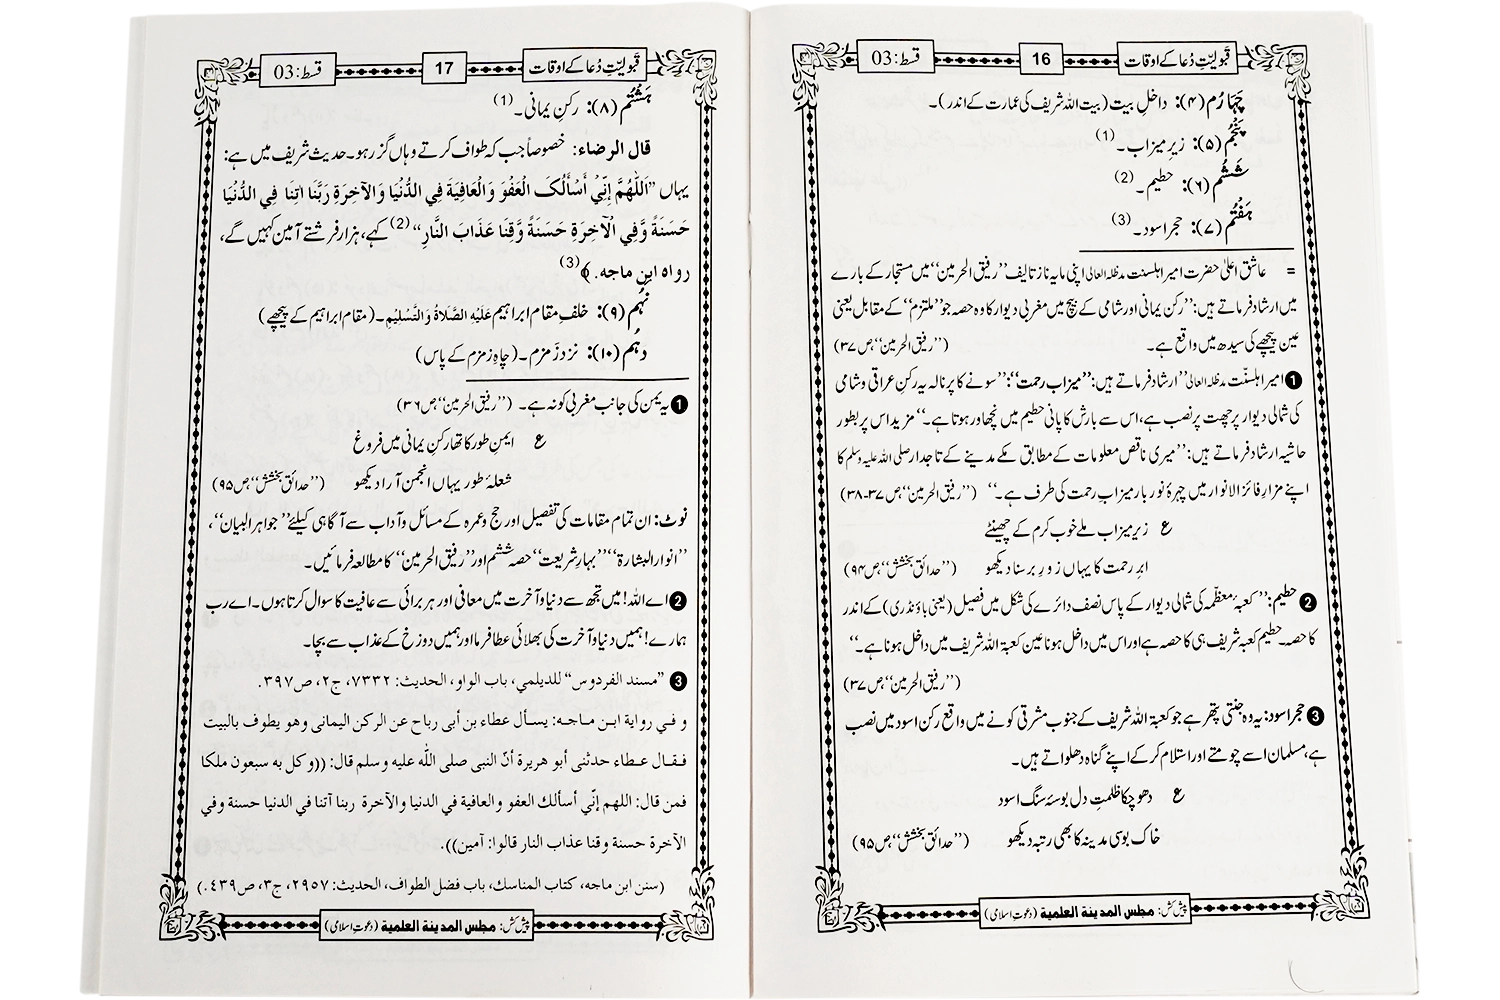 قبولیتِ دُعا کے اوقات
16
قسط:03
چہارم (۴): داخلِ بیت (بیت اللہ شریف کی عمارت کے اندر)۔
پنجم (۵): زیرِ میزاب۔(1)
ششم (۶): حطیم۔(2)
ہفتم (۷): حجرِ اسود۔(3)
= عاشقِ اعلیٰ حضرت امیرِ اہلسنت مدظلہ العالی اپنی مایہ ناز تالیف ’’رفیق الحرمین‘‘ میں مستجار کے بارے
میں ارشاد فرماتے ہیں: ’’رکنِ یمانی اور شامی کے بیچ میں مغربی دیوار کا وہ حصہ جو ’’ملتزم‘‘ کے مقابل یعنی
عین پیچھے کی سیدھ میں واقع ہے۔ (’’رفیق الحرمین‘‘ ص۳۷)
❶ امیرِ اہلسنّت مدظلہ العالی ’’ارشاد فرماتے ہیں: ’’میزابِ رحمت‘‘: ’’سونے کا پرنالہ یہ رکنِ عراقی و شامی
کی شمالی دیوار پر چھت پر نصب ہے، اس سے بارش کا پانی حطیم میں نچھاور ہوتا ہے۔‘‘ مزید اس پر بطور
حاشیہ ارشاد فرماتے ہیں: ’’میری ناقص معلومات کے مطابق مکے مدینے کے تاجدار صلی اللہ علیہ وسلم کا
اپنے مزارِ فائز الانوار میں چہرۂ نور بار میزابِ رحمت کی طرف ہے۔‘‘ (’’رفیق الحرمین‘‘ ص۳۷-۳۸)
ع زیرِ میزاب ملے خوب کرم کے چھینٹے
ابرِ رحمت کا یہاں زورِ برسنا دیکھو (’’حدائق بخشش‘‘ ص۹۴)
❷ حطیم: ’’کعبۂ معظّمہ کی شمالی دیوار کے پاس نصف دائرے کی شکل میں فصیل (یعنی باؤنڈری) کے اندر
کا حصہ۔ حطیم کعبہ شریف ہی کا حصہ ہے اور اس میں داخل ہونا عین کعبۃ اللہ شریف میں داخل ہونا ہے۔‘‘
(’’رفیق الحرمین‘‘ ص۳۷)
❸ حجرِ اسود: یہ وہ جنتی پتھر ہے جو کعبۃ اللہ شریف کے جنوب مشرقی کونے میں واقع رکنِ اسود میں نصب
ہے، مسلمان اسے چومتے اور استلام کر کے اپنے گناہ دھلواتے ہیں۔
ع دھو چکا ظلمتِ دل بوسۂ سنگِ اسود
خاک بوسیِ مدینہ کا بھی رتبہ دیکھو (’’حدائق بخشش‘‘ ص۹۵)
پیش کش: مجلس المدينة العلمية (دعوتِ اسلامی)
قبولیتِ دُعا کے اوقات
17
قسط:03
ہشتم (۸): رکنِ یمانی۔(1)
قال الرضاء: خصوصاً جب کہ طواف کرتے وہاں گزر ہو۔ حدیث شریف میں ہے:
یہاں ’’اَللّٰهُمَّ إِنِّيْ أَسْأَلُکَ الْعَفْوَ وَالْعَافِيَةَ فِي الدُّنْيَا وَالآخِرَةِ رَبَّنَا اٰتِنَا فِي الدُّنْيَا
حَسَنَةً وَّفِي الْآخِرَةِ حَسَنَةً وَّقِنَا عَذَابَ النَّارِ‘‘(2) کہے، ہزار فرشتے آمین کہیں گے،
رواہ ابن ماجه.﴾(3)
نہم (۹): خلفِ مقامِ ابراہیم عَلَيْهِ الصَّلَاةُ وَالتَّسْلِيْمِ۔ (مقامِ ابراہیم کے پیچھے)
دہم (۱۰): نزدِ زَمزم۔ (چاہِ زمزم کے پاس)
❶ یہ یمن کی جانب مغربی کونہ ہے۔ (’’رفیق الحرمین‘‘ ص۳۶)
ع ایمنِ طور کا تھا رکنِ یمانی میں فروغ
شعلۂ طور یہاں انجمن آرا دیکھو (’’حدائق بخشش‘‘ ص۹۵)
نوٹ: ان تمام مقامات کی تفصیل اور حج و عمرہ کے مسائل و آداب سے آگاہی کیلئے ’’جواہر البیان‘‘،
’’انوار البشارۃ‘‘ ’’بہارِ شریعت‘‘ حصہ ششم اور ’’رفیق الحرمین‘‘ کا مطالعہ فرمائیں۔
❷ اے اللہ! میں تجھ سے دنیا و آخرت میں معافی اور ہر برائی سے عافیت کا سوال کرتا ہوں۔ اے رب
ہمارے! ہمیں دنیا و آخرت کی بھلائی عطا فرما اور ہمیں دوزخ کے عذاب سے بچا۔
❸ ’’مسند الفردوس‘‘ للديلمي، باب الواو، الحديث: ۷۳۳۲، ج۲، ص۳۹۷.
و فـي رواية ابـن مـاجـه: يسـأل عطاء بن أبى رباح عن الركن اليمانى وهو يطوف بالبيت
فـقـال عـطاء حدثنى أبو هريرة أنّ النبى صلى الله عليه وسلم قال: ((وكل به سبعون ملكا
فمن قال: اللهم إنّي أسألك العفو والعافية في الدنيا والآخرة ربنا آتنا في الدنيا حسنة وفي
الآخرة حسنة وقنا عذاب النار قالوا: آمين)).
(سنن ابن ماجه، كتاب المناسك، باب فضل الطواف، الحديث: ۲۹۵۷، ج۳، ص۴۳۹.)
پیش کش: مجلس المدينة العلمية (دعوتِ اسلامی)